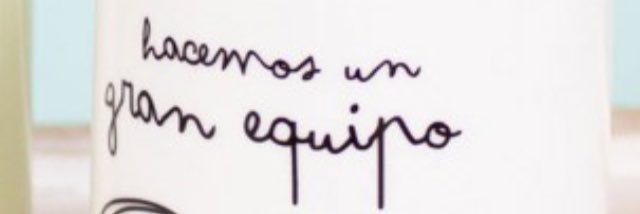 hacemos un
gran equipo